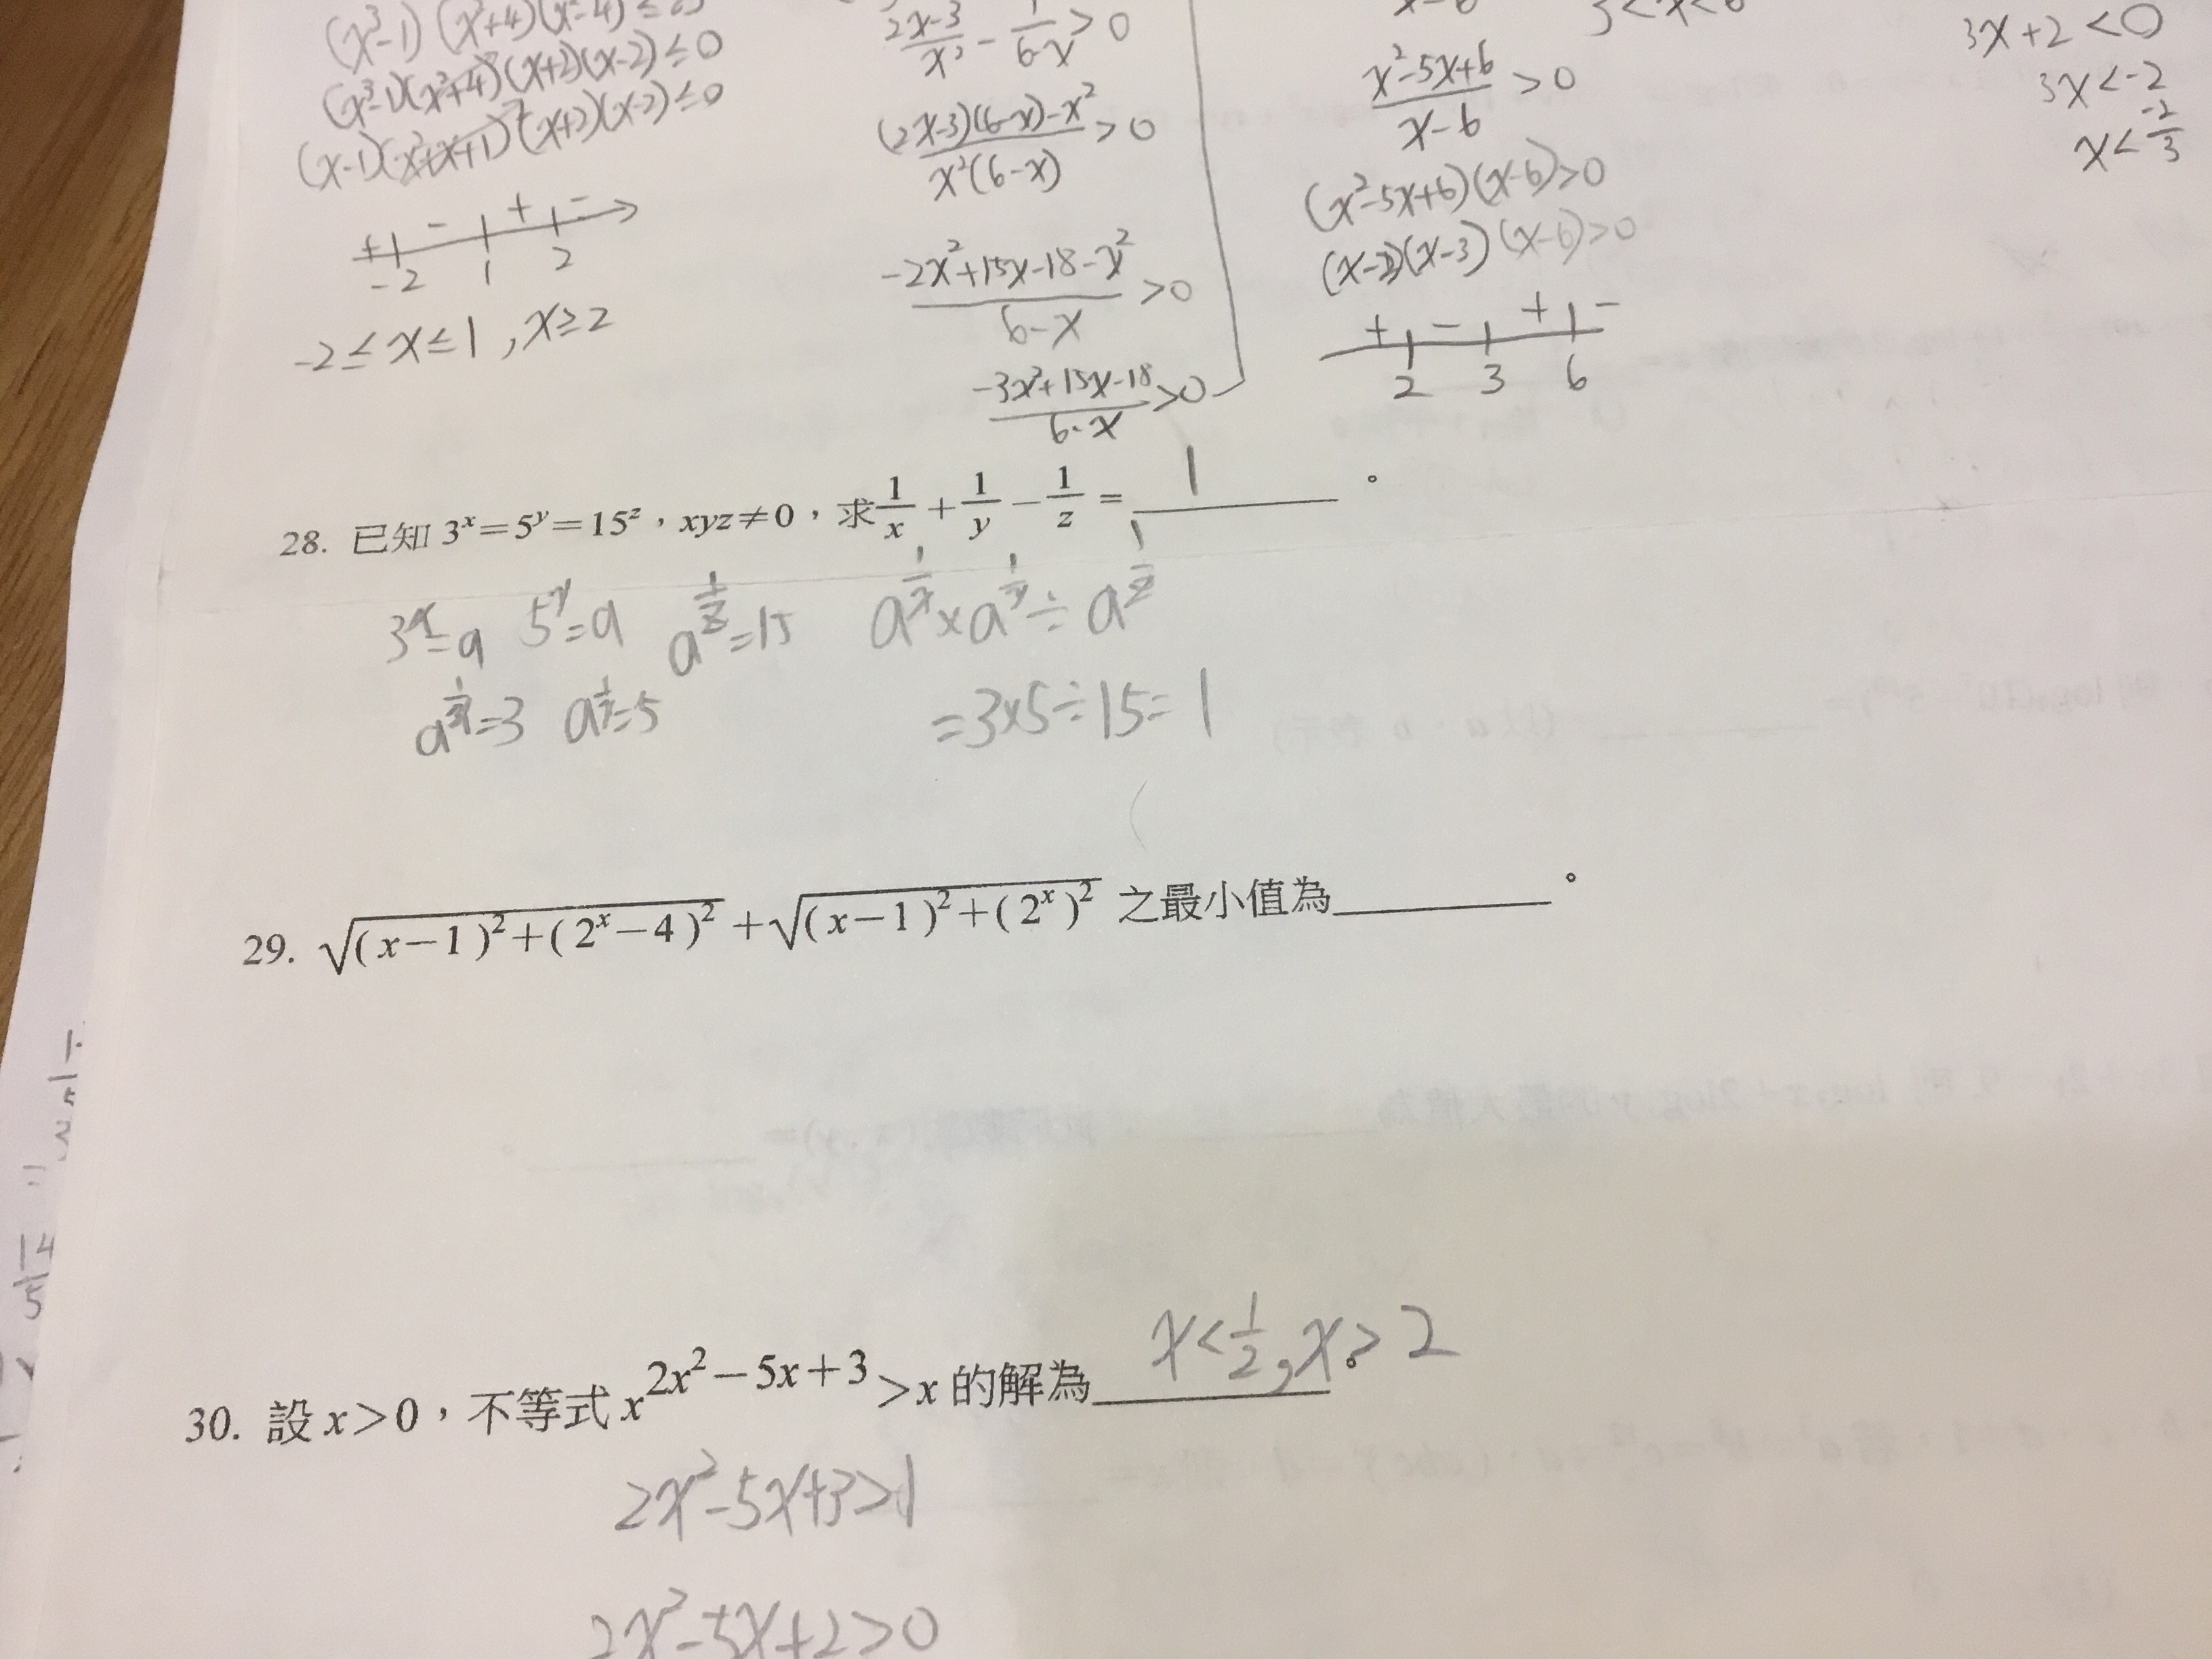 (x³-1)(x²+4)(x²-4)≤0
(x³-1)(x²+4)(x+2)(x-2)≤0
(x-1)(x²+x+1)(x+2)(x-2)≤0
+ - + -
-2 1 2
-2≤x≤1, x≥2
(2x-3)(6-x)-x² / x²(6-x) >0
-2x²+15x-18-x² / 6-x >0
-3x²+15x-18 / 6-x >0
x²-5x+6 / x-6 >0
(x²-5x+6)(x-6)>0
(x-2)(x-3)(x-6)>0
+ - + -
2 3 6
3x+2<0
3x<-2
x<-2/3
28. 已知 3^x=5^y=15^z,xyz≠0,求 1/x + 1/y - 1/z = 1 。
3^x=a 5^y=a a^(1/z)=15 a^(1/x)×a^(1/y)÷a^(1/z)
a^(1/x)=3 a^(1/y)=5 =3×5÷15=1
29. √((x-1)²+(2^x-4)²) + √((x-1)²+(2^x)²) 之最小值為 。
30. 設 x>0,不等式 x^(2x²-5x+3) >x 的解為 x<1/2, x>2 。
2x²-5x+3>1
2x²-5x+2>0
1/5
14/5